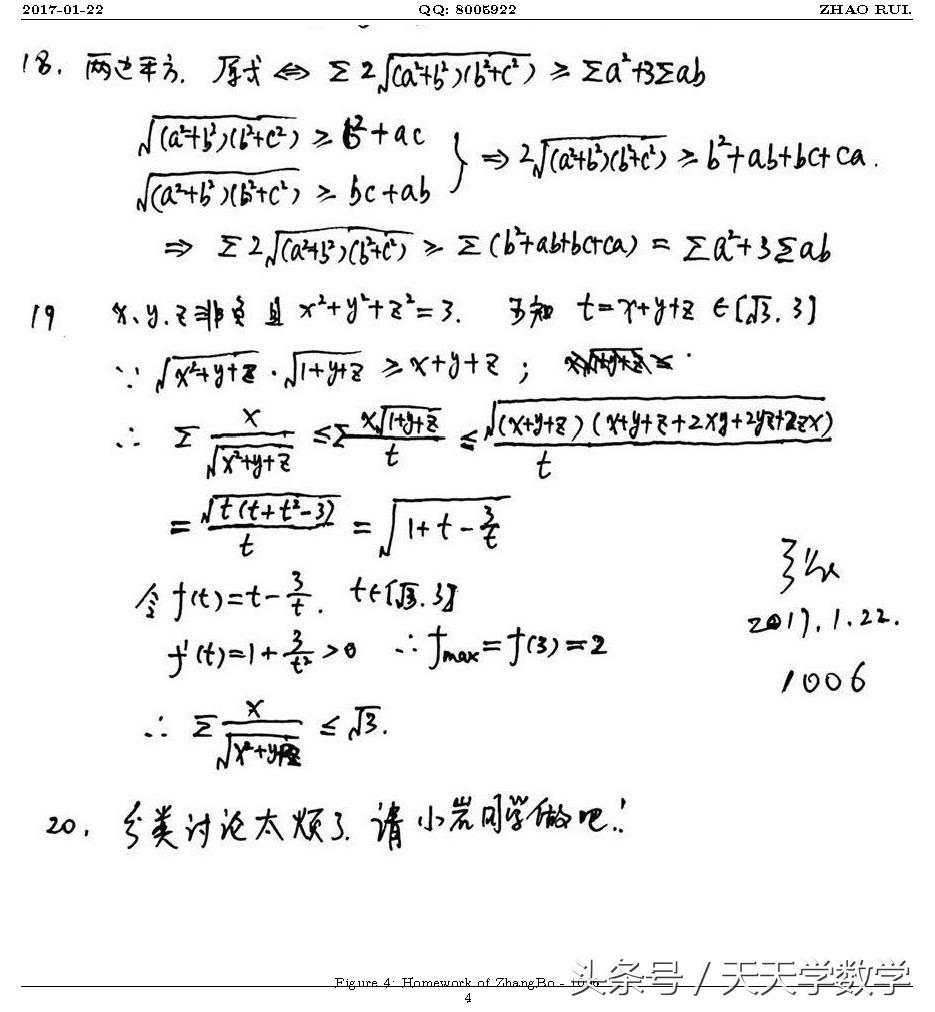 2017-01-22 QQ: 8005922 ZHAO RUI.
18. 两边平方. 原式 ⇔ Σ2√((a²+b²)(b²+c²)) ≥ Σa²+3Σab
√((a²+b²)(b²+c²)) ≥ b²+ac
√((a²+b²)(b²+c²)) ≥ bc+ab } ⇒ 2√((a²+b²)(b²+c²)) ≥ b²+ab+bc+ca.
⇒ Σ2√((a²+b²)(b²+c²)) ≥ Σ(b²+ab+bc+ca) = Σa²+3Σab
19 x、y、z非负且 x²+y²+z²=3. 易知 t=x+y+z ∈[√3. 3]
∵ √(x²+y+z) · √(1+y+z) ≥ x+y+z ;
∴ Σ x/√(x²+y+z) ≤ Σ x√(1+y+z)/t ≤ √((x+y+z)(x+y+z+2xy+2yz+2zx))/t
= √(t(t+t²-3))/t = √(1+t-3/t)
令 f(t)=t-3/t. t∈[√3. 3]
f'(t)=1+3/t²>0 ∴ fmax=f(3)=2
2017.1.22.
1006
∴ Σ x/√(x²+y+z) ≤ √3.
20. 分类讨论太烦了. 请小岩同学做吧!
Figure 4: Homework of ZhangBo - 1006
头条号 / 天天学数学
4